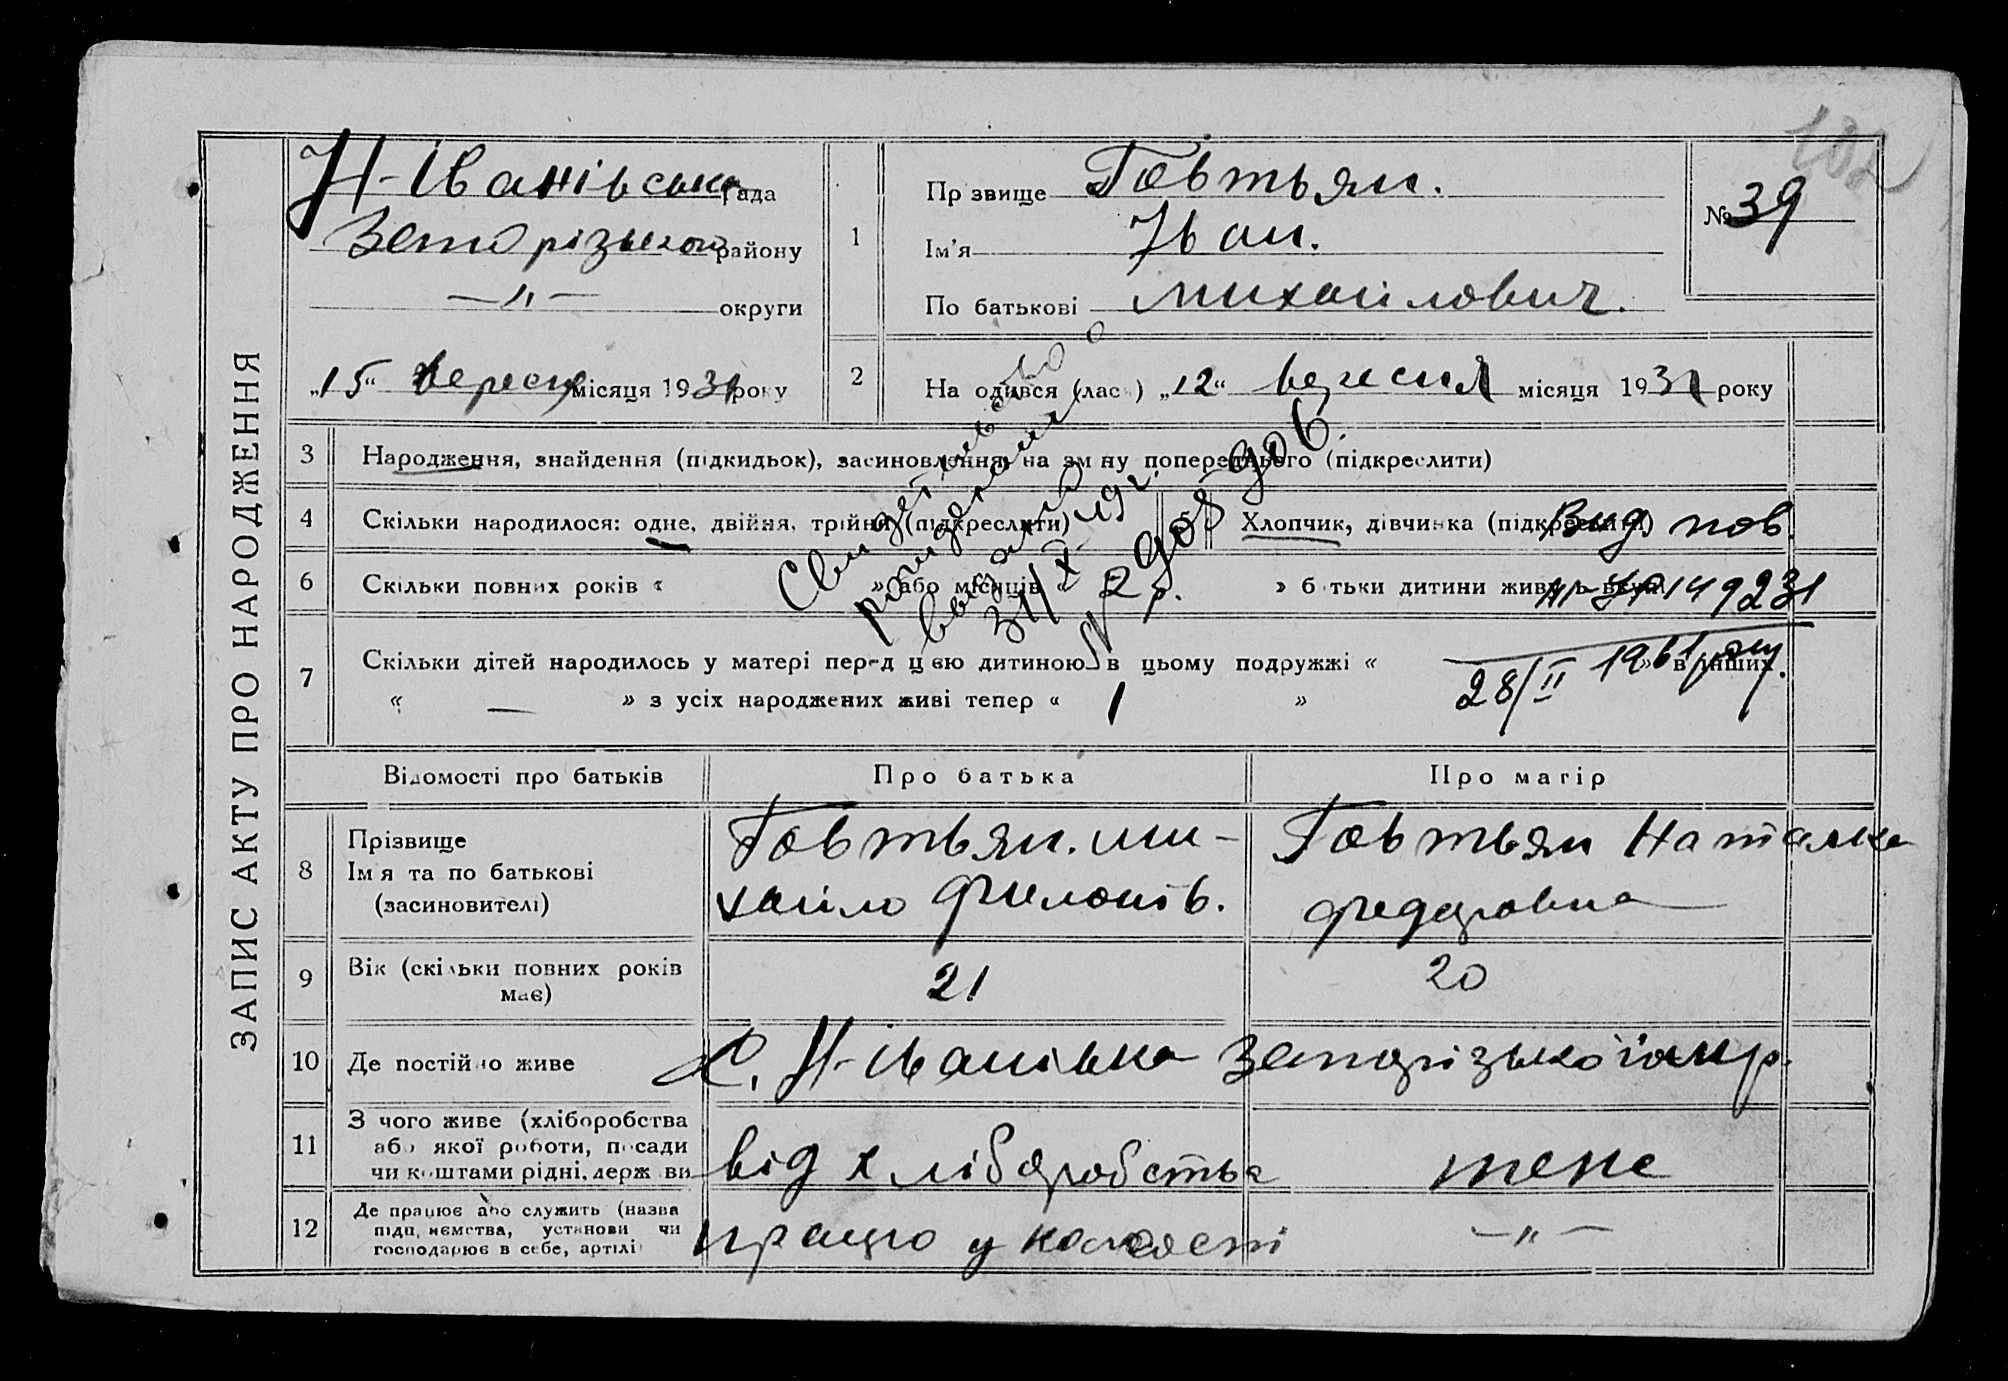 102
ЗАПИС АКТУ ПРО НАРОДЖЕННЯ
Н-Іванівська рада
Запорізького району
—〃— округи
„15“ вересня місяця 1931 року
1
Прізвище Говтьян.
Ім'я Іван.
По батькові Михайлович.
№ 39
2 Народився (лась) „12“ вересня місяця 1931 року
3 Народження, знайдення (підкидьок), засиновлення, на зміну попереднього (підкреслити)
4 Скільки народилося: одне, двійня, трійня (підкреслити)
5 Хлопчик, дівчинка (підкреслити)
6 Скільки повних років « » або місяців « 2 р. » батьки дитини живуть вкупі
7 Скільки дітей народилось у матері перед цією дитиною в цьому подружжі « » в інших
« — » з усіх народжених живі тепер « 1 »
Свидетельство о
рождении
выдано
31/X 49 г.
дов
Вид. пов.
149231
28/II 1961 року.
Відомості про батьків
Про батька
Про матір
8 Прізвище
Ім'я та по батькові
(засиновителі)
Говтьян. Ми-
хайло Филонів.
Говтьян Наталка
Федоровна
9 Вік (скільки повних років
має)
21
20
10 Де постійно живе
с. Н-Іванівка Запорізького р.
11 З чого живе (хліборобства
або якої роботи, посади
чи коштами рідні, держави
від хліборобства
теж
12 Де працює або служить (назва
підприємства, установи чи
господарює в себе, артілі)
працю у колгоспі
—〃—